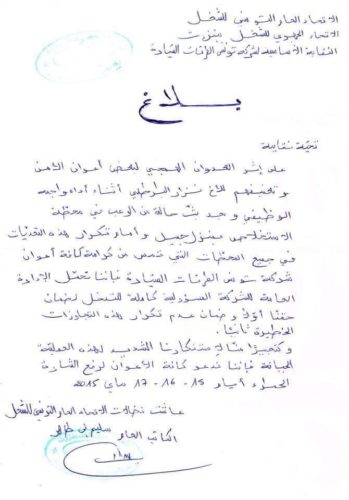 الاتحاد العام التونسي للشغل
الاتحاد الجهوي للشغل ببنزرت
النقابة الأساسية لشركة تونس الطرقات السيارة
بلاغ
تحية نقابية
على إثر العدوان الهمجي لبعض أعوان الأمن
و تعنيفهم للأخ نزار الطرابلسي أثناء أداء واجبه
الوظيفي و حد بث حالة من الرعب في محطة
الاستخلاص بمنزل جميل و أمام تكرار هذه التعديات
في جميع المحطات التي تمس من كرامة كافة أعوان
شركة تونس الطرقات السيارة فإننا نحمل الإدارة
العامة للشركة المسؤولية كاملة للتدخل لضمان
حقنا أولا و ضمان عدم تكرار هذه التجاوزات
الخطيرة ثانيا.
و كتعبيرا منا لاستنكارنا الشديد لهذه العملية
الجبانة فإننا ندعو كافة الأعوان لرفع الشارة
الحمراء أيام 15 - 16 - 17 ماي 2015
عاشت نضالات الاتحاد العام التونسي للشغل
الكاتب العام سليم بن